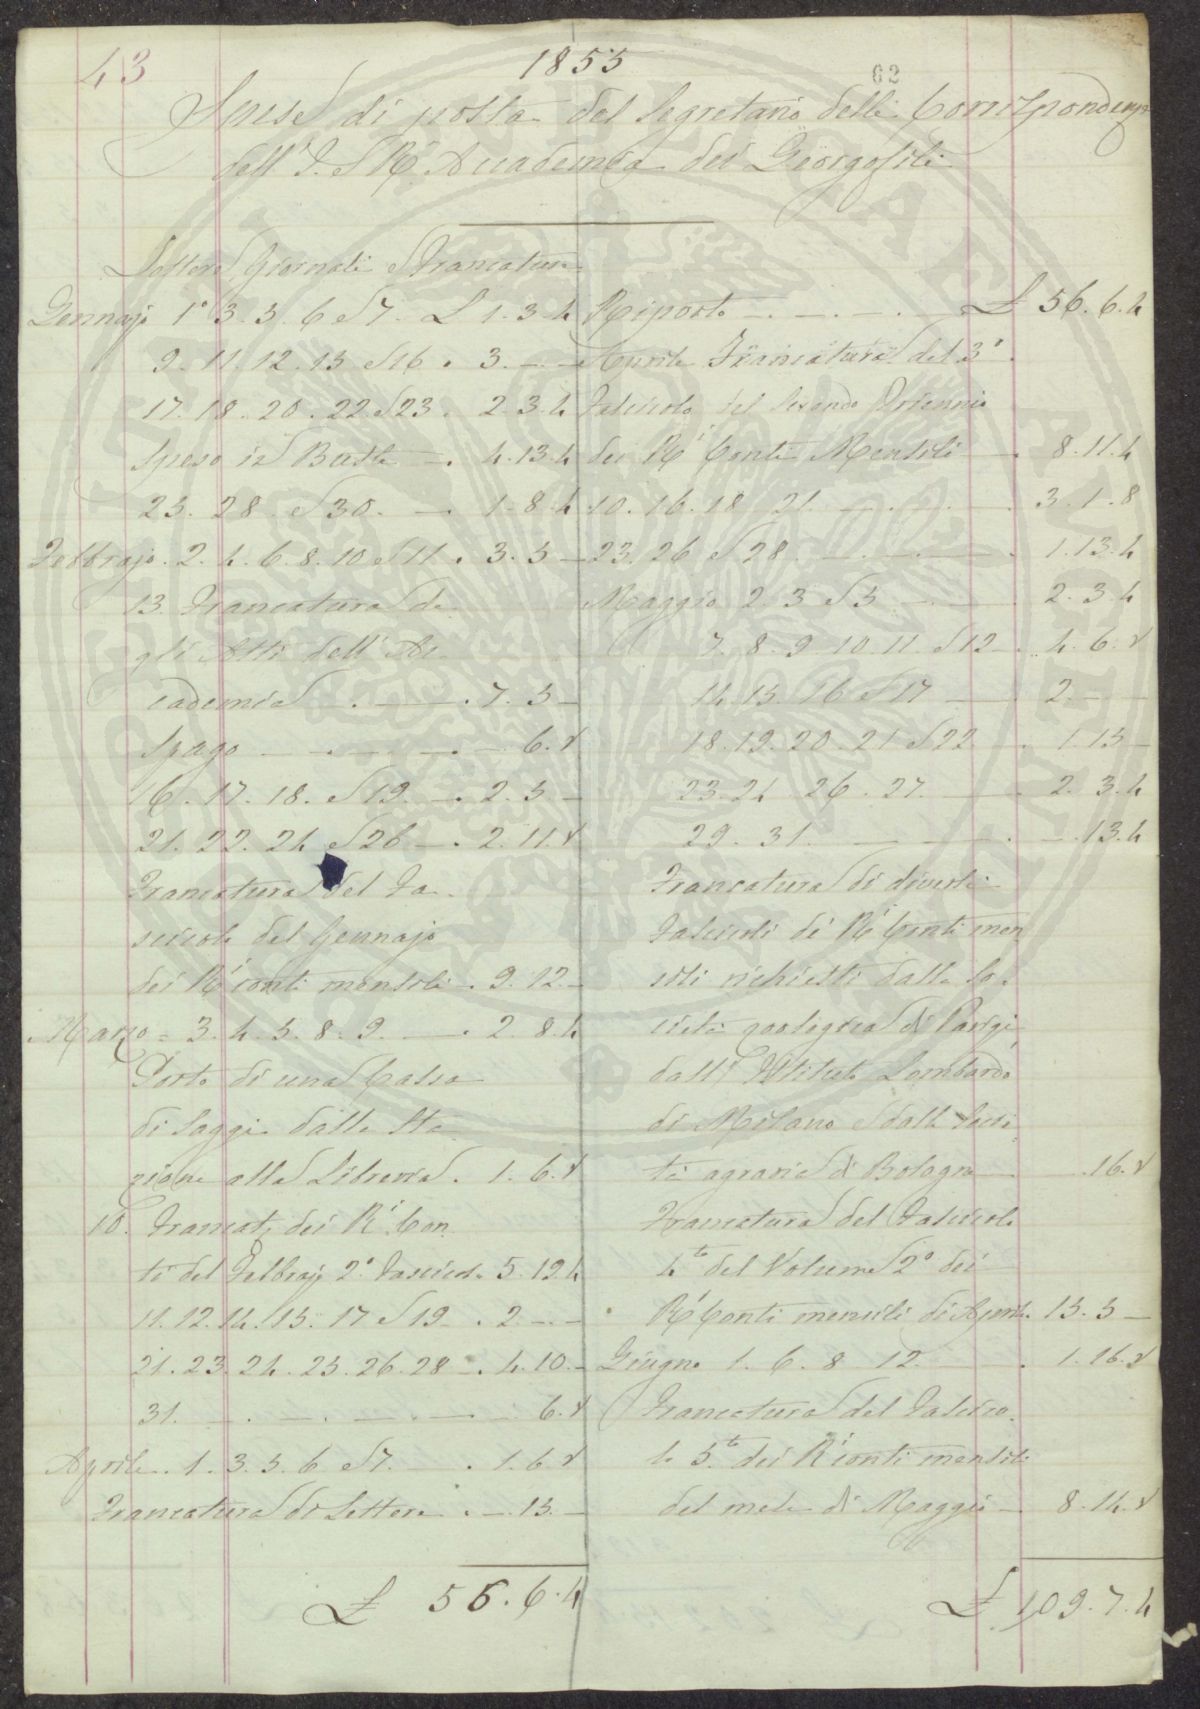 43
1855
62
Spese di posta del Segretario delle Corrispondenze
dell' I. e R. Accademia dei Georgofili
Lettere Giornali e Francature
Gennajo 1° 3. 5. 6 e 7. £ 1. 3. 4
9. 11. 12. 15 e 16 . 3. — —
17. 18. 20. 22 e 23 . 2. 3. 4
Speso in Buste — . 4. 13. 4
25. 28 e 30. — . 1. 8. 4
Febbrajo. 2. 4. 6. 8. 10 e 11 . 3. 5 —
13. Francatura de
gli Atti dell' Ac
cademia . — . 7. 5 —
Spago — . — . — 6. 8
16. 17. 18. e 19. — . 2. 5. —
21. 22. 24 e 26 — . 2. 11. 8
Francatura del Fa
scicolo del Gennajo
dei R.i conti mensili . 9. 12. —
Marzo = 3. 4. 5. 8. 9. — . 2. 8. 4
Porto di una Cassa
di Saggi dalla Sta
zione alla Libreria . 1. 6. 8
10. Francat. dei R.i Con
ti del Febbrajo 2° Fascicolo 5. 19. 4
11. 12. 14. 15. 17 e 19 — . 2 — —
21. 23. 24. 25. 26. 28 — . 4. 10. —
31. — . — . — 6. 8
Aprile . 1. 3. 5. 6 e 7. . 1. 6. 8
Francatura di Lettere . — 15. —
£ 56. 6. 4
Riporto — . — . — . £ 56. 6. 4
Aprile Francatura del 3°
Fascicolo del Secondo Triennio
dei R.i Conti Mensili — . 8. 11. 4
10. 16. 18 21. — . — 3. 1. 8
23. 26 e 28 — . — . 1. 13. 4
Maggio 2. 3 e 5 — . 2. 3. 4
7. 8. 9. 10. 11. e 12 — . 4. 6. 8
14. 15. 16 e 17 — . 2. — —
18. 19. 20. 21 e 22 . 1. 15 —
23. 24 26. 27. — . 2. 3. 4
29. 31. — . — . — 13. 4
Francatura di diversi
Fascicoli di R.i Conti men
sili richiesti dalla So
cietà zoologica di Parigi
dall' Istituto Lombardo
di Milano e dalla Socie
tà agraria di Bologna — . 16. 8
Francatura del Fascicolo
4.to del Volume 2° dei
R.i Conti mensili di Aprile 15. 5 —
Giugno 1. 6. 8 12. . 1. 16. 8
Francatura del Fascico
lo 5.to dei R.i conti mensili
del mese di Maggio — 8. 14. 8
£ 109. 7. 4